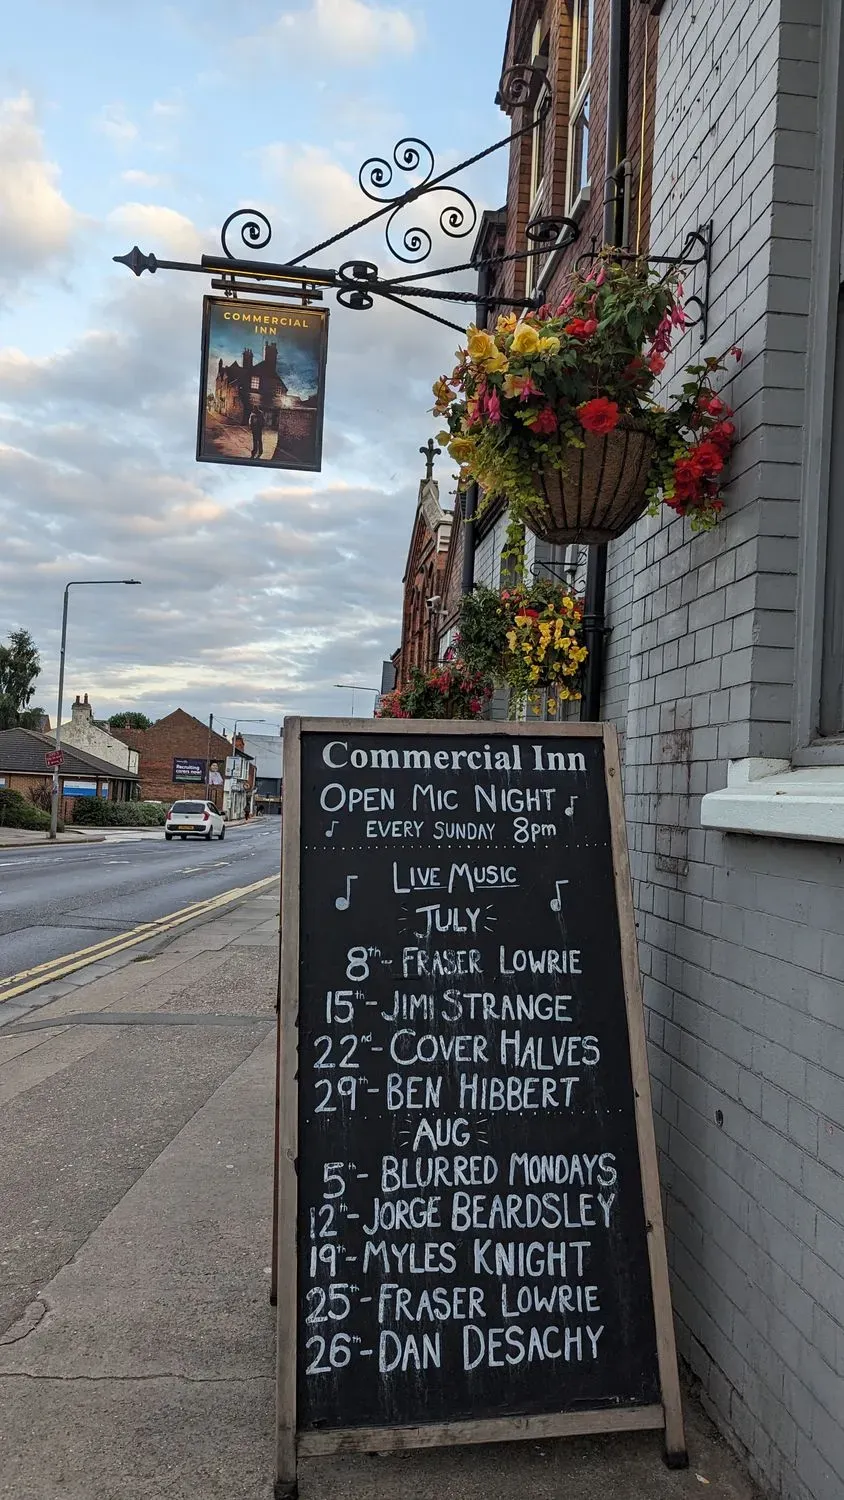 COMMERCIAL
INN
Recruiting
carers now!
Commercial Inn
OPEN MIC NIGHT
EVERY SUNDAY 8pm
LIVE MUSIC
JULY
8th - FRASER LOWRIE
15th - JIMI STRANGE
22nd - COVER HALVES
29th - BEN HIBBERT
AUG
5th - BLURRED MONDAYS
12th - JORGE BEARDSLEY
19th - MYLES KNIGHT
25th - FRASER LOWRIE
26th - DAN DESACHY